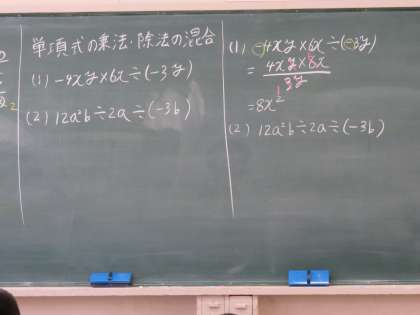 単項式の乗法・除法の混合
(1) -4xy×6x÷(-3y)
(2) 12a²b÷2a÷(-3b)
(1) -4xy×6x÷(-3y)
= 4xy×6x / 3y
= 8x²
(2) 12a²b÷2a÷(-3b)